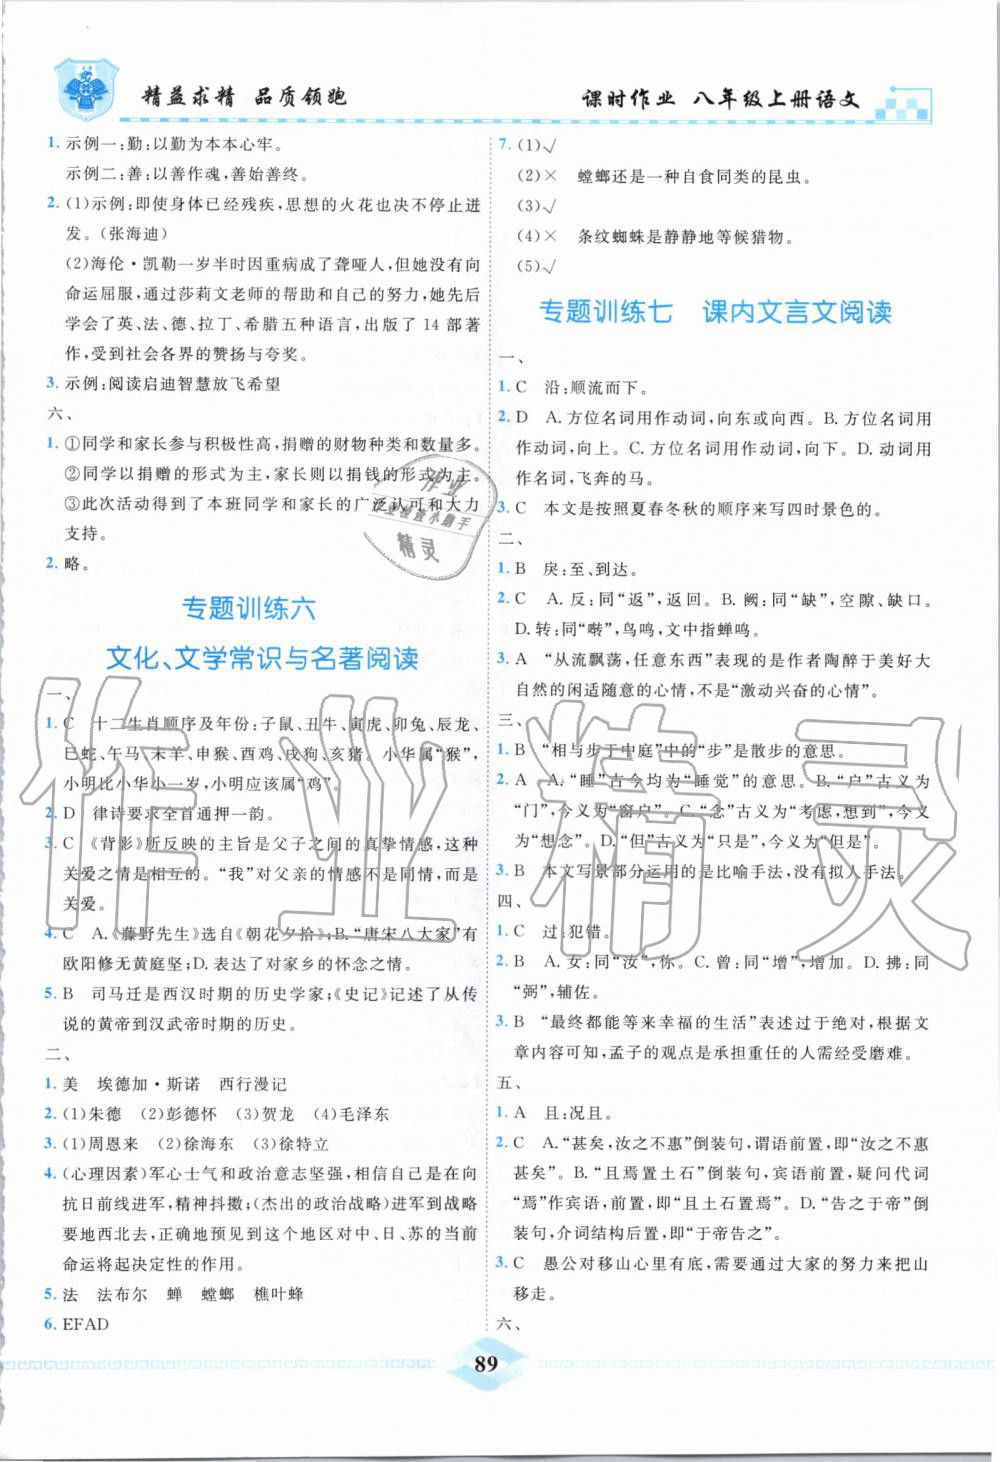 精益求精 品质领跑
课时作业 八年级上册语文
1. 示例一:勤:以勤为本本心牢。
示例二:善:以善作魂,善始善终。
2. (1)示例:即使身体已经残疾,思想的火花也决不停止迸
发。(张海迪)
(2)海伦·凯勒一岁半时因重病成了聋哑人,但她没有向
命运屈服,通过莎莉文老师的帮助和自己的努力,她先后
学会了英、法、德、拉丁、希腊五种语言,出版了 14 部著
作,受到社会各界的赞扬与夸奖。
3. 示例:阅读启迪智慧放飞希望
六、
1. ①同学和家长参与积极性高,捐赠的财物种类和数量多。
②同学以捐赠的形式为主,家长则以捐钱的形式为主。
③此次活动得到了本班同学和家长的广泛认可和大力
支持。
2. 略。
专题训练六
文化、文学常识与名著阅读
一、
1. C 十二生肖顺序及年份:子鼠、丑牛、寅虎、卯兔、辰龙、
巳蛇、午马、未羊、申猴、酉鸡、戌狗、亥猪。小华属“猴”,
小明比小华小一岁,小明应该属“鸡”。
2. D 律诗要求全首通押一韵。
3. C 《背影》所反映的主旨是父子之间的真挚情感,这种
关爱之情是相互的。“我”对父亲的情感不是同情,而是
关爱。
4. C A.《藤野先生》选自《朝花夕拾》;B.“唐宋八大家”有
欧阳修无黄庭坚;D.表达了对家乡的怀念之情。
5. B 司马迁是西汉时期的历史学家;《史记》记述了从传
说的黄帝到汉武帝时期的历史。
二、
1. 美 埃德加·斯诺 西行漫记
2. (1)朱德 (2)彭德怀 (3)贺龙 (4)毛泽东
3. (1)周恩来 (2)徐海东 (3)徐特立
4. (心理因素)军心士气和政治意志坚强,相信自己是在向
抗日前线进军,精神抖擞;(杰出的政治战略)进军的战略
要地西北去,正确地预见到这个地区对中、日、苏的当前
命运将起决定性的作用。
5. 法 法布尔 蝉 螳螂 樵叶蜂
6. EFAD
7. (1)√
(2)× 螳螂还是一种自食同类的昆虫。
(3)√
(4)× 条纹蜘蛛是静静地等候猎物。
(5)√
专题训练七 课内文言文阅读
一、
1. C 沿:顺流而下。
2. D A.方位名词用作动词,向东或向西。B.方位名词用
作动词,向上。C.方位名词用作动词,向下。D.动词用
作名词,飞奔的马。
3. C 本文是按照夏春冬秋的顺序来写四时景色的。
二、
1. B 戾:至、到达。
2. C A.反:同“返”,返回。B.阙:同“缺”,空隙、缺口。
D.转:同“啭”,鸟鸣,文中指蝉鸣。
3. A “从流飘荡,任意东西”表现的是作者陶醉于美好大
自然的闲适随意的心情,不是“激动兴奋的心情”。
三、
1. B “相与步于中庭”中的“步”是散步的意思。
2. A A.“睡”古今均为“睡觉”的意思。B.“户”古义为
“门”,今义为“窗户”。C.“念”古义为“考虑,想到”,今义
为“想念”。D.“但”古义为“只是”,今义为“但是”。
3. B 本文写景部分运用的是比喻手法,没有拟人手法。
四、
1. C 过:犯错。
2. B A.女:同“汝”,你。C.曾:同“增”,增加。D.拂:同
“弼”,辅佐。
3. B “最终都能等来幸福的生活”表述过于绝对,根据文
章内容可知,孟子的观点是承担重任的人需经受磨难。
五、
1. A 且:况且。
2. C A.“甚矣,汝之不惠”倒装句,谓语前置,即“汝之不惠
甚矣”。B.“且焉置土石”倒装句,宾语前置,疑问代词
“焉”作宾语,前置,即“且土石置焉”。D.“告之于帝”倒
装句,介词结构后置,即“于帝告之”。
3. C 愚公对移山心里有底,不是靠大家的努力来把山
移走。
六、
89
作业
作业检查小助手
精灵
作业精灵